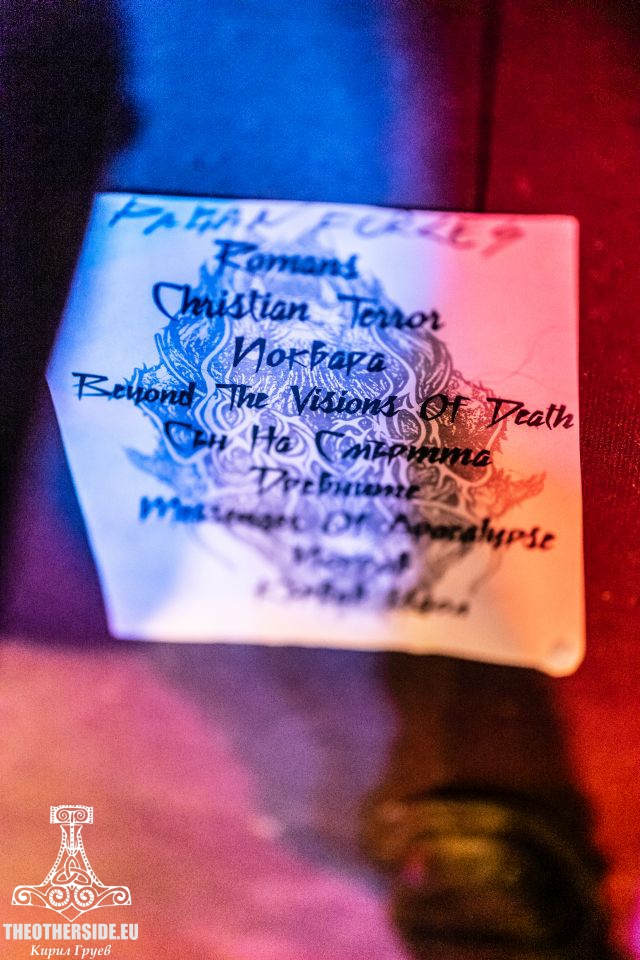 PAGAN FORCES
Romans
Christian Terror
Поквара
Beyond The Visions Of Death
Сън На Смъртта
Древните
Messenger Of Apocalypse
THEOTHERSIDE.EU
Кирил Груев